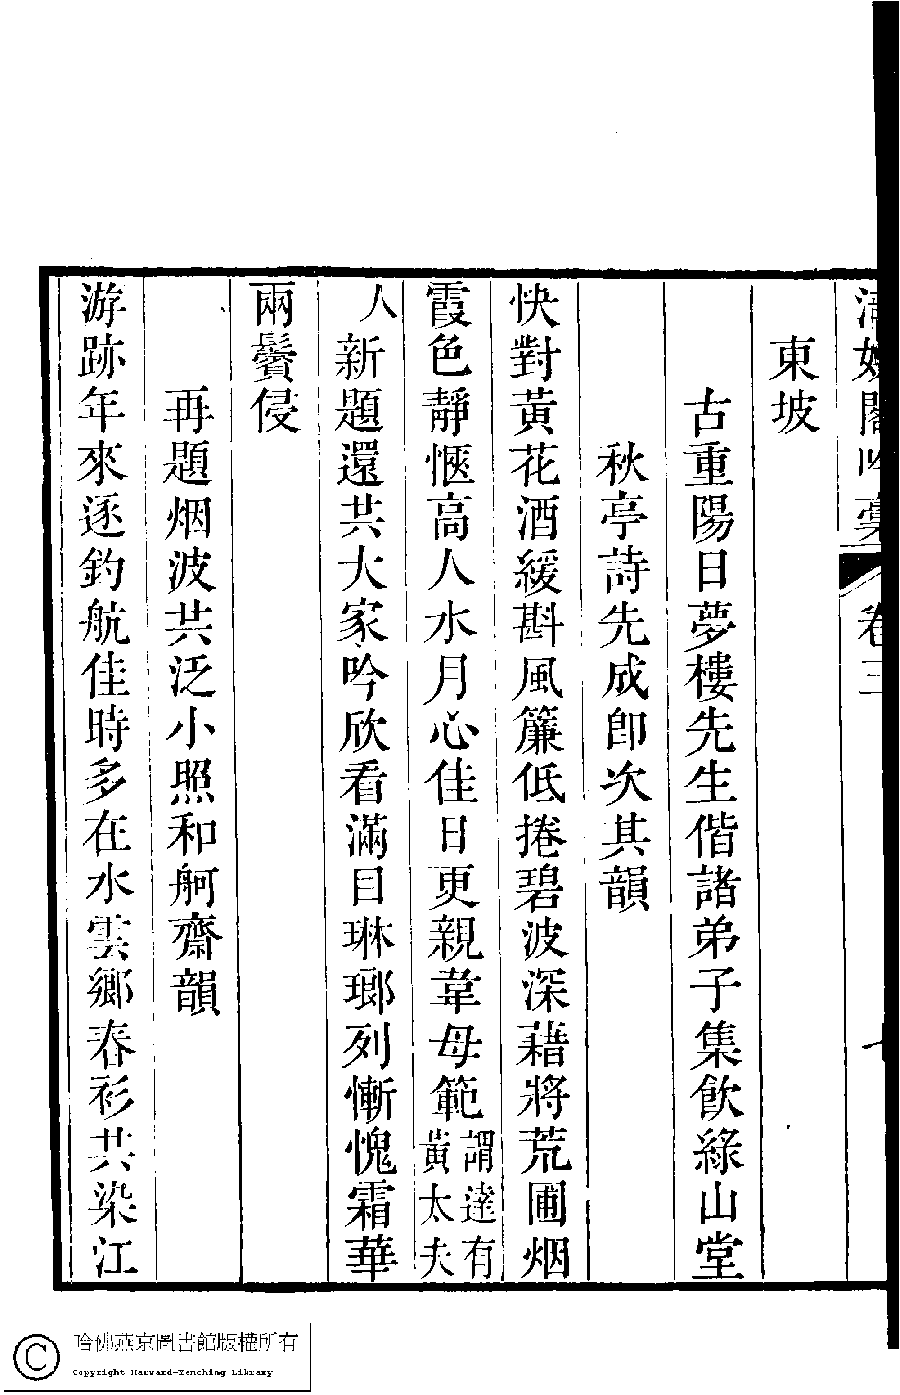 清娛閣吟稾 卷三
東坡
古重陽日夢樓先生偕諸弟子集飲綠山堂
秋亭詩先成卽次其韻
快對黃花酒緩斟風簾低捲碧波深藉將荒圃烟
霞色靜愜高人水月心佳日更親韋母範謂達有黃太夫
人新題還共大家吟欣看滿目琳瑯列慚愧霜華
兩鬢侵
再題烟波共泛小照和舸齋韻
游跡年來逐釣航佳時多在水雲鄉春衫共染江
哈佛燕京圖書館版權所有
Copyright Harvard-Yenching Library